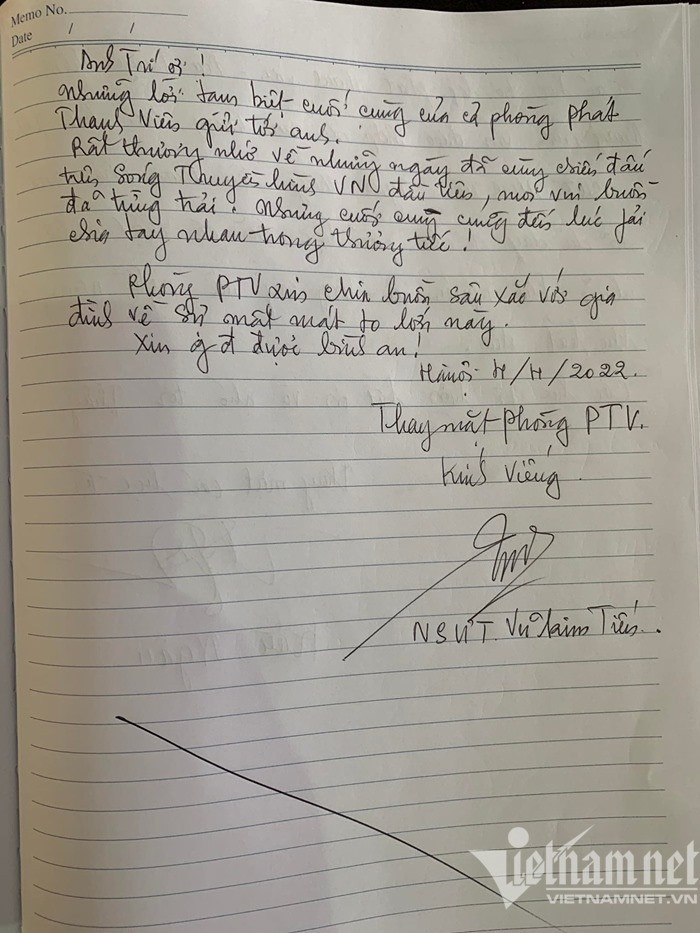 Memo No.
Date / /
Anh Trí ơi!
Những lời tạm biệt cuối cùng của cả phòng Phát
Thanh Viên gửi tới anh.
Rất thương nhớ về những ngày đã cùng chiến đấu
trên sóng Truyền hình VN đầu tiên, mọi vui buồn
đã từng trải. Nhưng cuối cùng cũng đến lúc fải
chia tay nhau trong thương tiếc!
Phòng PTV xin chia buồn sâu sắc với gia
đình về sự mất mát to lớn này.
Xin g đ được bình an!
Hà nội /2022.
Thay mặt phòng PTV.
Kính Viếng.
NSƯT. Vũ Kim Tiến.
Vietnamnet
VIETNAMNET.VN